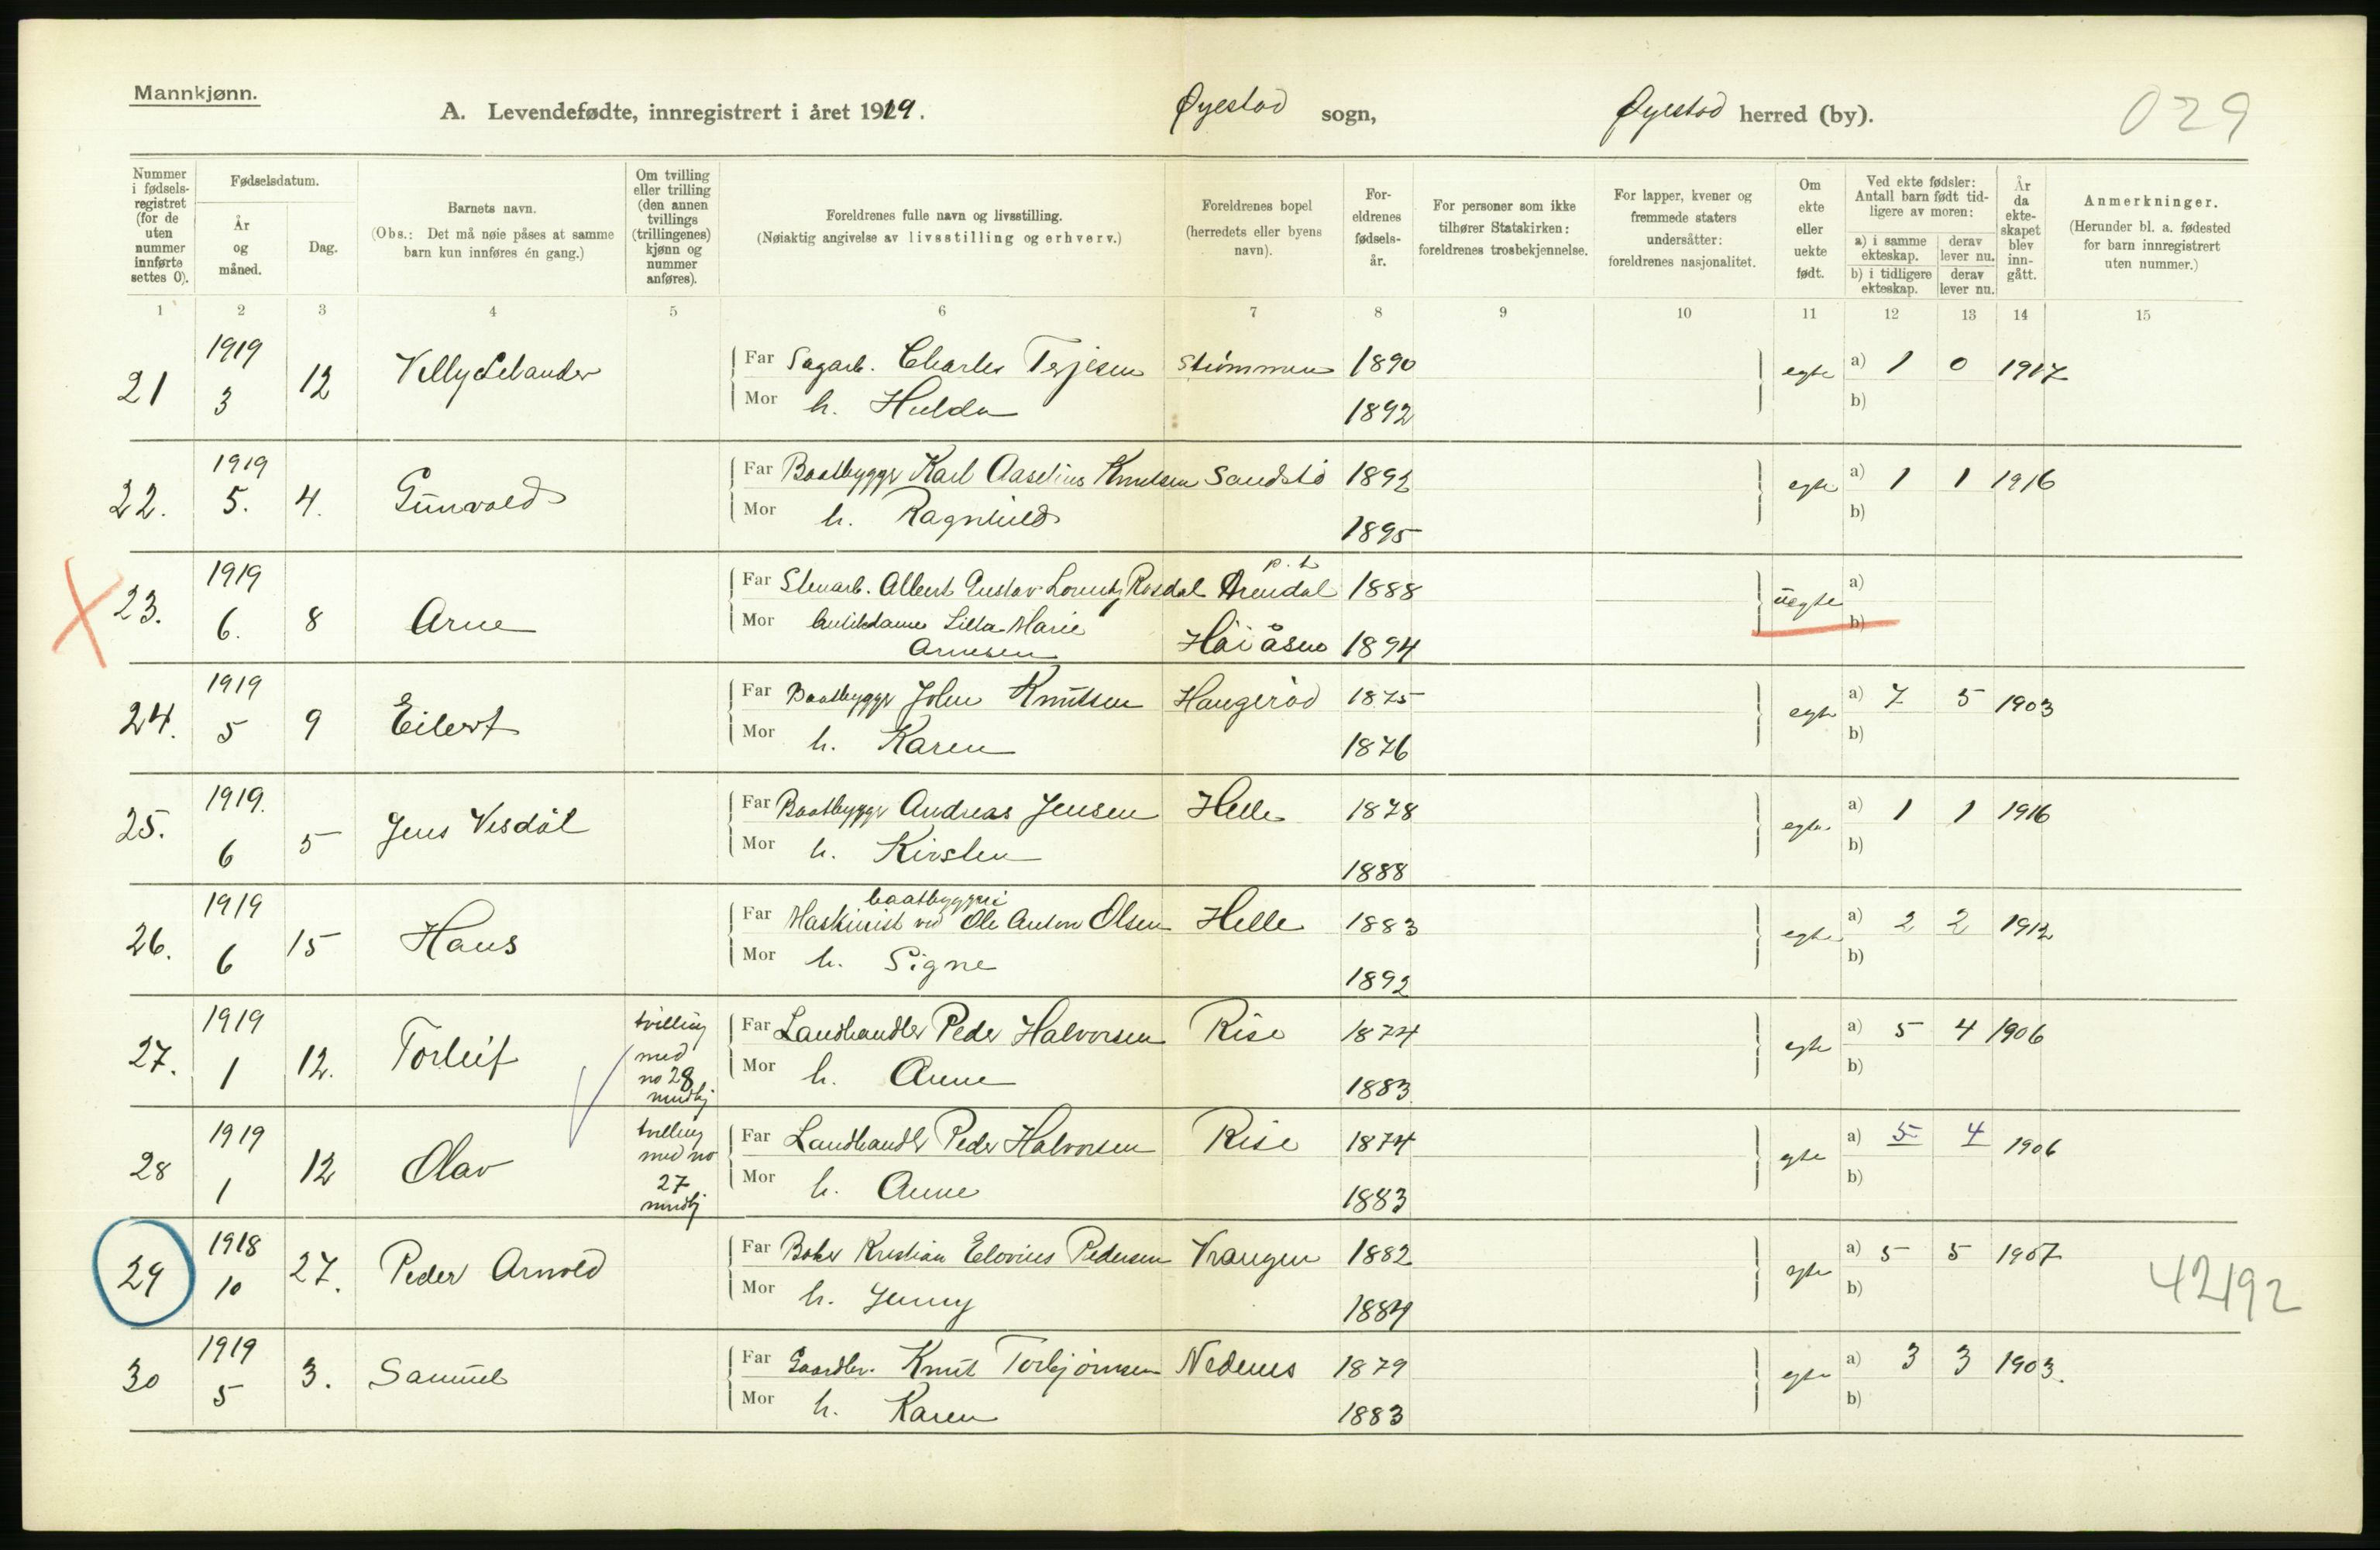 Mannkjønn.
A. Levendefødte, innregistrert i året 1919. Øyestad sogn, Øyestad herred (by). 029
Nummer i fødsels-registret (for de uten nummer innførte settes 0).
Fødselsdatum.
År og måned.
Dag.
Barnets navn.
(Obs.: Det må nøie påses at samme barn kun innføres én gang.)
Om tvilling eller trilling (den annen tvillings (trillingenes) kjønn og nummer anføres).
Foreldrenes fulle navn og livsstilling.
(Nøiaktig angivelse av livsstilling og erhverv.)
Foreldrenes bopel (herredets eller byens navn).
For-eldrenes fødsels-år.
For personer som ikke tilhører Statskirken: foreldrenes trosbekjennelse.
For lapper, kvener og fremmede staters undersåtter: foreldrenes nasjonalitet.
Om ekte eller uekte født.
Ved ekte fødsler: Antall barn født tid-ligere av moren:
a) i samme ekteskap. derav lever nu.
b) i tidligere ekteskap. derav lever nu.
År da ekte-skapet blev inn-gått.
Anmerkninger.
(Herunder bl. a. fødested for barn innregistrert uten nummer.)
1 2 3 4 5 6 7 8 9 10 11 12 13 14 15
21 1919 3 12 Far Sagarb. Charles Terjesen Strømmen 1890 egte a) 1 0 1917
Mor h. Hulda 1892 b)
22. 1919 5. 4. Gunvald Far Baatbygger Karl Aaselius Knutsen Sandstø 1892 egte a) 1 1 1916
Mor h. Ragnhild 1895 b)
23. 1919 6. 8 Arne Far Stenarb. Albert Gustav Lorentz Rosdal p. t. Arendal 1888 uegte a)
Mor Lilla Marie Arnesen Høiåsen 1894 b)
24. 1919 5 9 Eilert Far Baatbygger John Knutsen Haugerød 1875 egte a) 7 5 1903
Mor h. Karen 1876 b)
25. 1919. 6 5 Jens Visdal Far Baatbygger Andreas Jensen Helle 1878 egte a) 1 1 1916
Mor h. Kirsten 1888 b)
26. 1919 6 15 Hans Far Maskinist ved baatbyggeri Ole Anton Olsen Helle 1883 egte a) 2 2 1912
Mor h. Signe 1892 b)
27. 1919 1 12. Torleif tvilling med no 28 Far Landhandler Peder Halvorsen Rise 1874 egte a) 5 4 1906
Mor h. Anne 1883 b)
28 1919 1 12 Olav tvilling med no 27 Far Landhandler Peder Halvorsen Rise 1874 egte a) 5 4 1906
Mor h. Anne 1883 b)
29 1918 10 27. Peder Arnold Far Kristian Elovius Pedersen Vrangen 1882 egte a) 5 5 1907 42192
Mor h. Jenny 1884 b)
30 1919 5 3. Samuel Far Gaardbr. Knut Torbjørnsen Nedenes 1879 egte a) 3 3 1903.
Mor h. Karen 1883 b)